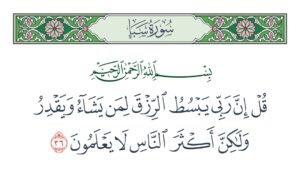 سُورَةُ سَبَإٍ
بِسْمِ اللَّهِ الرَّحْمَٰنِ الرَّحِيمِ
قُلْ إِنَّ رَبِّي يَبْسُطُ الرِّزْقَ لِمَن يَشَاءُ وَيَقْدِرُ
وَلَٰكِنَّ أَكْثَرَ النَّاسِ لَا يَعْلَمُونَ ٣٦